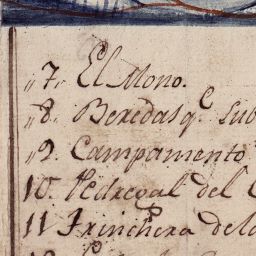 „7. El Mono.
„8. Beredas q.e sub
„9. Campamento
10. Pedregal del
11 Trinchera del